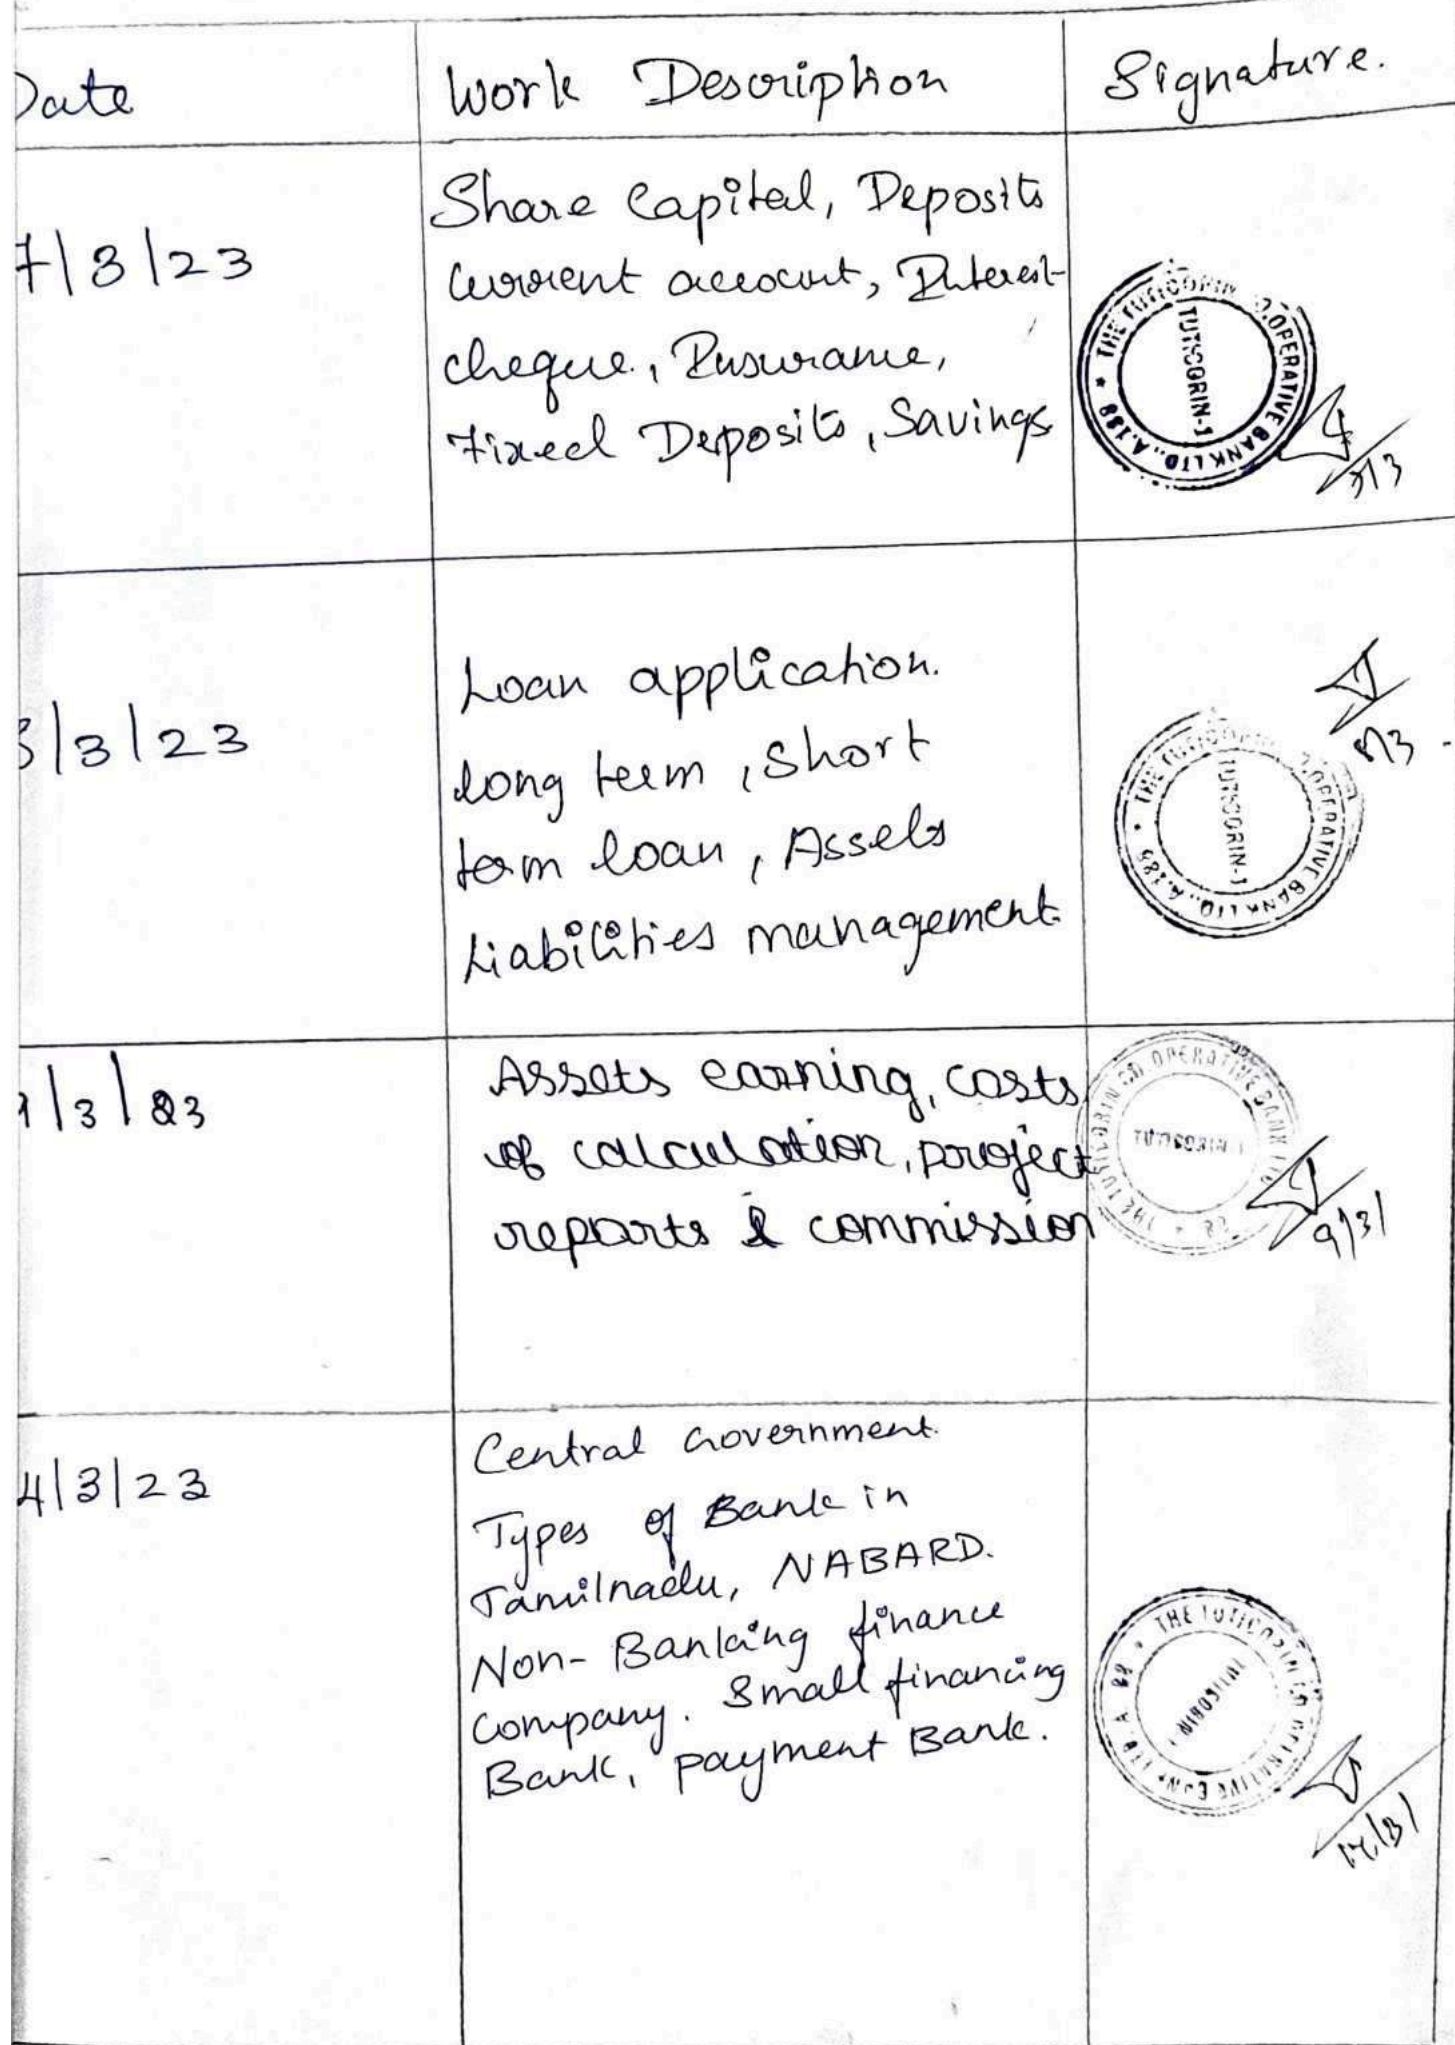 Date
Work Description
Signature.
7/3/23
Share Capital, Deposits
Current account, Interest
cheque, Insurance,
Fixed Deposits, Savings
THE TUTICORIN CO.OPERATIVE BANK LTD., A.188
TUTICORIN-1
7/3
8/3/23
Loan application.
long term, Short
term loan, Assets
Liabilities management.
THE TUTICORIN CO.OPERATIVE BANK LTD., A.188
TUTICORIN-1
8/3
9/3/23
Assets earning, costs
of calculation, project
reports & commission
THE TUTICORIN CO OPERATIVE BANK LTD
TUTICORIN-1
9/3/
4/3/23
Central Government.
Types of Bank in
Tamilnadu, NABARD.
Non-Banking finance
Company. Small financing
Bank, payment Bank.
THE TUTICORIN CO OPERATIVE BANK LTD. A
TUTICORIN-1
14/3/